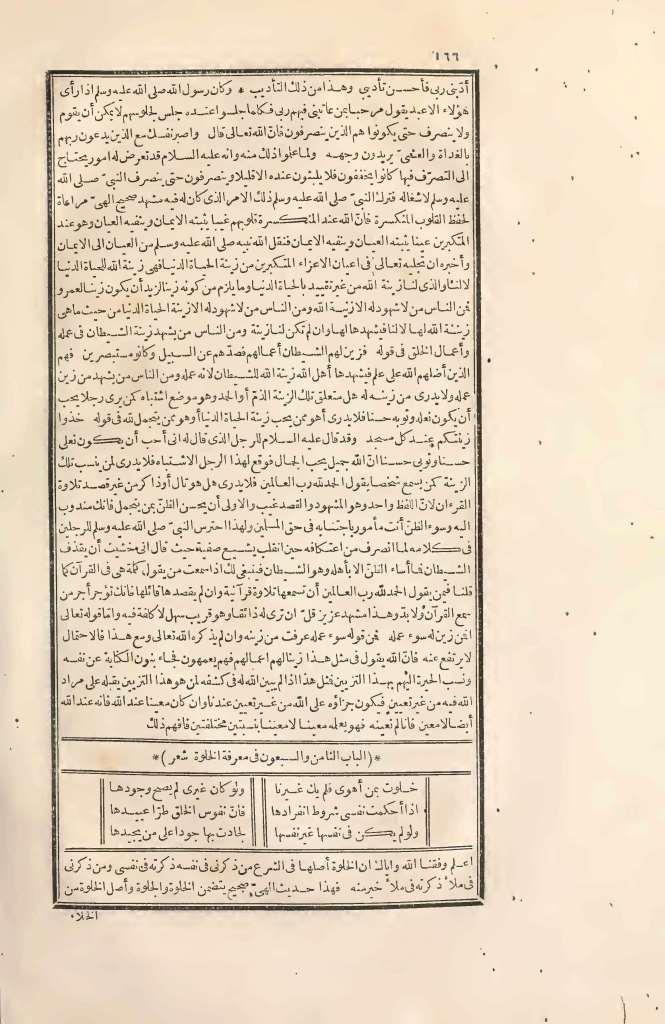 ١٦٦
أدّبنى ربى فأحسن تأديبى وهذا من ذلك التأديب * وكان رسول الله صلى الله عليه وسلم اذا رأى
هؤلاء الاعبد يقول مرحبا بمن عاتبنى فيهم ربى فكلما جلسوا عنده جلس لجلوسهم لا يمكن أن يقوم
ولا ينصرف حتى يكونوا هم الذين ينصرفون فانّ الله تعالى قال واصبر نفسك مع الذين يدعون ربهم
بالغداة والعشىّ يريدون وجهه ولما علموا ذلك منه وانه عليه السلام قد تعرض له امور يحتاج
الى التصرّف فيها كانوا يخففون فلا يلبثون عنده الا قليلا وينصرفون حتى ينصرف النبىّ صلى الله
عليه وسلم لاشغاله فترك النبىّ صلى الله عليه وسلم ذلك الامر الذى كان له فيه مشهد صحيح الهىّ مراعاة
لحفظ القلوب المنكسرة فانّ الله عند المنكسرة قلوبهم غيبا يثبته الايمان وينفيه العيان وهو عند
المتكبرين عينا يثبته العيان وينفيه الايمان فنقل الله نبيه صلى الله عليه وسلم من العيان الى الايمان
وأخبره ان تجليه تعالى فى اعيان الاعزاء المتكبرين من زينة الحياة الدنيا فهى زينة الله للحياة الدنيا
لا لنا والذى لنا زينة الله من غير تقييد بالحياة الدنيا وما يلزم من كونه زينا لزيد أن يكون زينا لعمرو
فمن الناس من لا شهود له الا زينة الله ومن الناس من لا شهود له الا زينة الحياة الدنيا من حيث ما هى
زينة الله لها لا لنا فيشهدها لها وان لم تكن لنا زينة ومن الناس من يشهد زينة الشيطان فى عمله
وأعمال الخلق فى قوله فزين لهم الشيطان أعمالهم فصدّهم عن السبيل وكانوا مستبصرين فهم
الذين أضلهم الله على علم فيشهدها أهل الله زينة الله للشيطان لانه عمله ومن الناس من يشهد من زين
عمله ولا يدرى من زينه له هل متعلق تلك الزينة الذمّ أو الحمد وهو موضع اشتباه كمن يرى رجلا يحب
أن يكون نعله وثوبه حسنا فلا يدرى أهو ممن يحب زينة الحياة الدنيا أو هو ممن يتجمل لله فى قوله خذوا
زينتكم عند كل مسجد وقد قال عليه السلام للرجل الذى قال له انى أحب أن يكون نعلى
حسنا وثوبى حسنا انّ الله جميل يحب الجمال فوقع لهذا الرجل الاشتباه فلا يدرى لمن ينسب تلك
الزينة كمن يسمع شخصا يقول الحمد لله رب العالمين فلا يدرى هل هو تال أو ذاكر من غير قصد تلاوة
القرءان لانّ اللفظ واحد وهو المشهود والقصد غيب والاولى أن يحسن الظنّ بمن يتجمل فانك مندوب
اليه وسوء الظنّ أنت مأمور باجتنابه فى حق المسلمين ولهذا احترس النبىّ صلى الله عليه وسلم للرجلين
فى كلامه لما انصرف من اعتكافه حين انقلب يشيع صفية حيث قال انى خشيت أن يقذف
الشيطان فما أساء الظنّ الا بأهله وهو الشيطان فينبغى لك اذا سمعت من يقول كلمة هى فى القرآن كما
قلنا فيمن يقول الحمد لله رب العالمين أن تسمعها تلاوة قرآنية وان لم يقصدها قائلها فانك تؤجر أجر من
سمع القرآن ولا بدّ وهذا مشهد عزيز قلّ ان ترى له ذائقا وهو قريب سهل لا كلفة فيه واما قوله تعالى
افمن زين له سوء عمله فمن قوله سوء عمله عرفت من زينه وان لم يذكره الله تعالى ومع هذا فالاحتمال
لا يرتفع عنه فانّ الله يقول فى مثل هذا زينا لهم اعمالهم فهم يعمهون فجاء بنون الكناية عن نفسه
ونسب الحيرة اليهم بهذا التزيين فمثل هذا اذا لم يبين الله له فى كشفه لمن هو هذا التزيين يقبله على مراد
الله فيه من غير تعيين فيكون جزاؤه على الله من غير تعيين عندنا وان كان معينا عند الله فانه عند الله
أيضا لا معين فانا لم نعينه فهو يعلمه معينا لا معينا بنسبتين مختلفتين فافهم ذلك
*(الباب الثامن والسبعون فى معرفة الخلوة شعر)*
خلوت بمن أهوى فلم يك غيرنا ولو كان غيرى لم يصح وجودها
اذا أحكمت نفسى شروط انفرادها فانّ نفوس الخلق طرّا عبيدها
ولو لم يكن فى نفسها غير نفسها لجادت بها جودا على من يجيدها
اعلم وفقنا الله واياك ان الخلوة أصلها فى الشرع من ذكرنى فى نفسه ذكرته فى نفسى ومن ذكرنى
فى ملأ ذكرته فى ملأ خير منه فهذا حديث الهىّ صحيح يتضمن الخلوة والجلوة وأصل الخلوة من
الخلاء